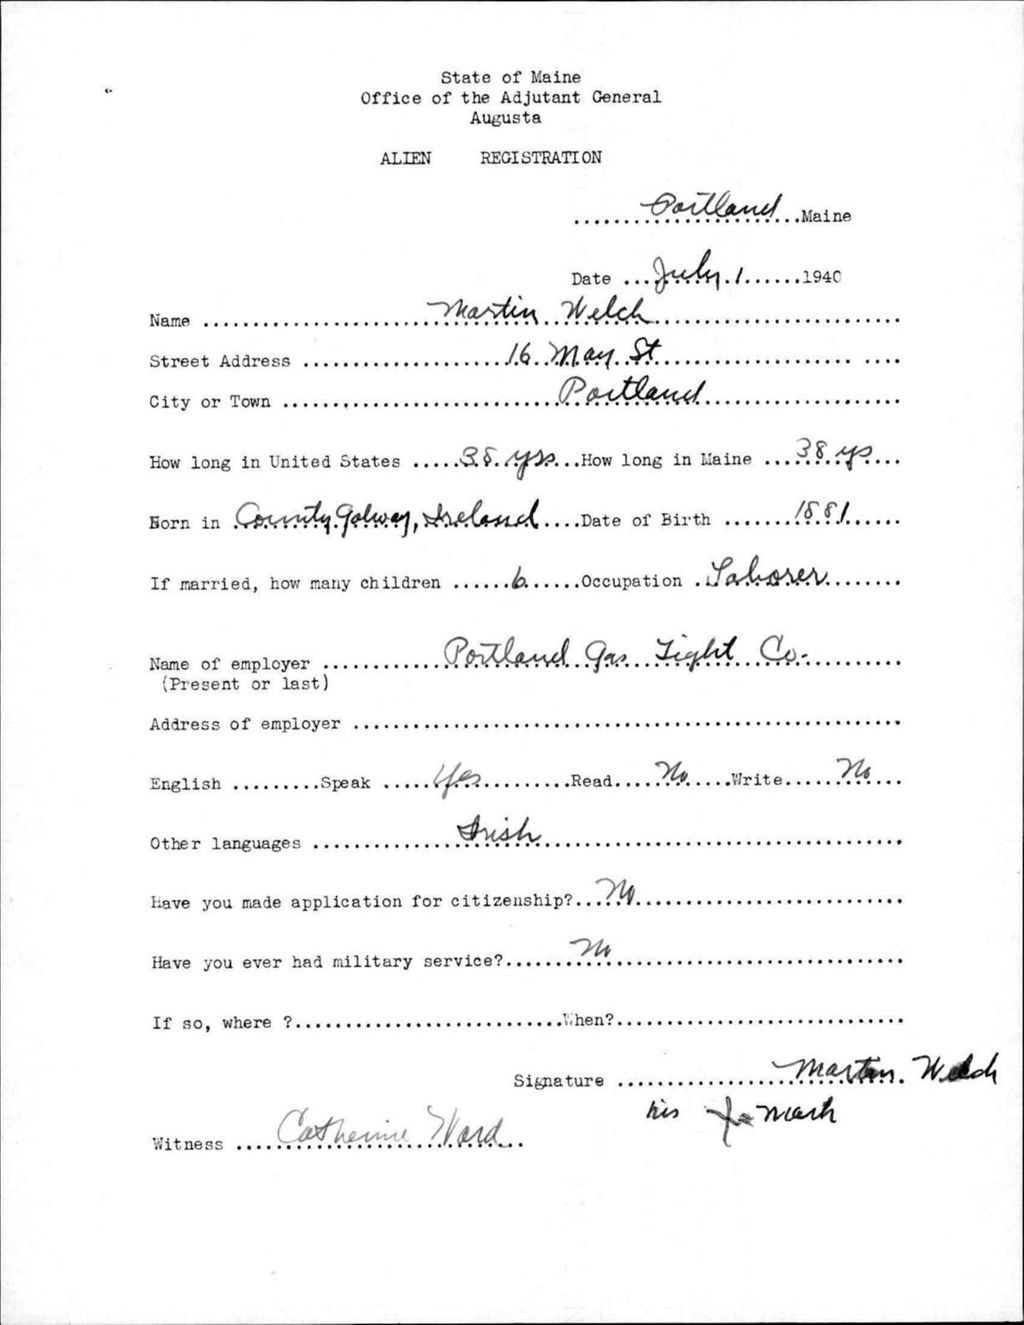 State of Maine
Office of the Adjutant General
Augusta
ALIEN REGISTRATION
.......Portland.......Maine
Date ...July 1......1940
Name ........Martin Welch........
Street Address ........16 May St........
City or Town ........Portland........
How long in United States .....38 yrs...How long in Maine ...38 ys...
Born in .County Galway, Ireland....Date of Birth .......1881......
If married, how many children ......6......Occupation .Laborer........
Name of employer ........Portland Gas Light Co.........
(Present or last)
Address of employer ........
English .........Speak .....Yes..........Read....No.....Write.....No...
Other languages ........Irish........
Have you made application for citizenship?...No........
Have you ever had military service?.......No........
If so, where ?........When?........
Signature ........Martin Welch
his x mark
Witness ....Catherine Ward..